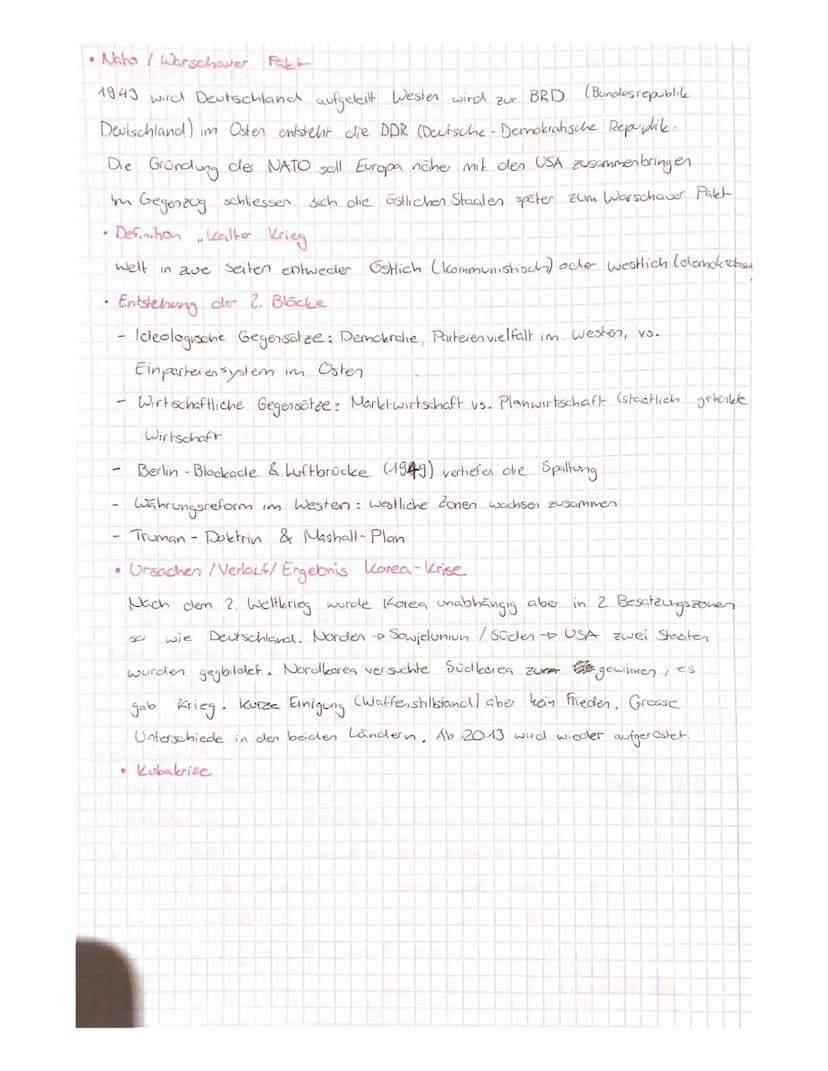 • Nato / Warschauer Pakt
1949 wird Deutschland aufgeteilt Westen wird zur BRD (Bundesrepublik
Deutschland) im Osten entsteht die DDR (Deutsche-Demokratische Republik.
Die Gründung der NATO soll Europa näher mit den USA zusammenbringen
Im Gegenzug schliessen sich die östlichen Staaten später zum Warschauer Pakt
• Definition „Kalter Krieg
Welt in zwei Seiten entweder Östlich (kommunistisch) oder westlich (demokratisch
• Entstehung der 2. Blöcke
- Ideologische Gegensätze: Demokratie, Parteienvielfalt im Westen, vs.
Einparteiensystem im Osten
- Wirtschaftliche Gegensätze: Marktwirtschaft vs. Planwirtschaft (staatlich gelenkte
Wirtschaft
- Berlin-Blockade & Luftbrücke (1949) vertiefen die Spaltung
- Währungsreform im Westen: westliche Zonen wachsen zusammen
- Truman-Doktrin & Mashall-Plan
• Ursachen/Verlauf/Ergebnis Korea-Krise
Nach dem 2. Weltkrieg wurde Korea unabhängig aber in 2 Besatzungszonen
so wie Deutschland. Norden -> Sowjetunion / Süden -> USA zwei Staaten
wurden gegbildet. Nordkorea versuchte Südkorea zum gewinnen, es
gab Krieg. Kurze Einigung (Waffenstillstand) aber kein Frieden. Grosse
Unterschiede in den beiden Ländern. Ab 2013 wird wieder aufgerüstet.
• Kubakrise